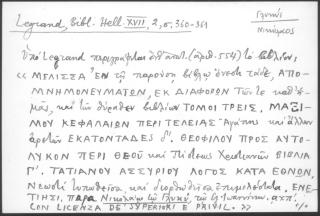 Legrand, Bibl. Hell. XVII, 2, σ. 360-361
Γλυκύς
Νικόλαος
Ὑπὸ Legrand περιγράφεται (ἀριθ. 554) τὸ βιβλίον,
« ΜΕΛΙΣΣΑ ἘΝ τῇ παρούσῃ βίβλῳ ἔνεστι ταῦτα, ΑΠΟ-
ΜΝΗΜΟΝΕΥΜΑΤΩΝ, ΕΚ ΔΙΑΦΟΡΩΝ Τῶν τε καθ' ἡ-
μᾶς, καὶ τῶν θύραθεν βιβλίων ΤΟΜΟΙ ΤΡΕΙΣ. ΜΑΞΙ-
ΜΟΥ ΚΕΦΑΛΑΙΩΝ ΠΕΡΙ ΤΕΛΕΙΑΣ Ἀγάπης καὶ ἄλλων
ἀρετῶν ΕΚΑΤΟΝΤΑΔΕΣ δ'. ΘΕΟΦΙΛΟΥ ΠΡΟΣ ΑΥΤΟ-
ΛΥΚΟΝ ΠΕΡΙ ΘΕΟΥ καὶ Πίστεως Χριστιανῶν ΒΙΒΛΙΑ
Γ'. ΤΑΤΙΑΝΟΥ ΑΣΣΥΡΙΟΥ ΛΟΓΟΣ ΚΑΤΑ ΕΘΝΩΝ.
Νεωστὶ τυπωθεῖσα καὶ διορθωθεῖσα ἐπιμελέστατα. ΕΝΕ-
ΤΙΗΣΙ, παρὰ Νικολάῳ τῷ Γλυκεῖ, τῷ ἐξ Ἰωαννίνων.
CON LICENZA DE' SUPERIORI E PRIVIL. »